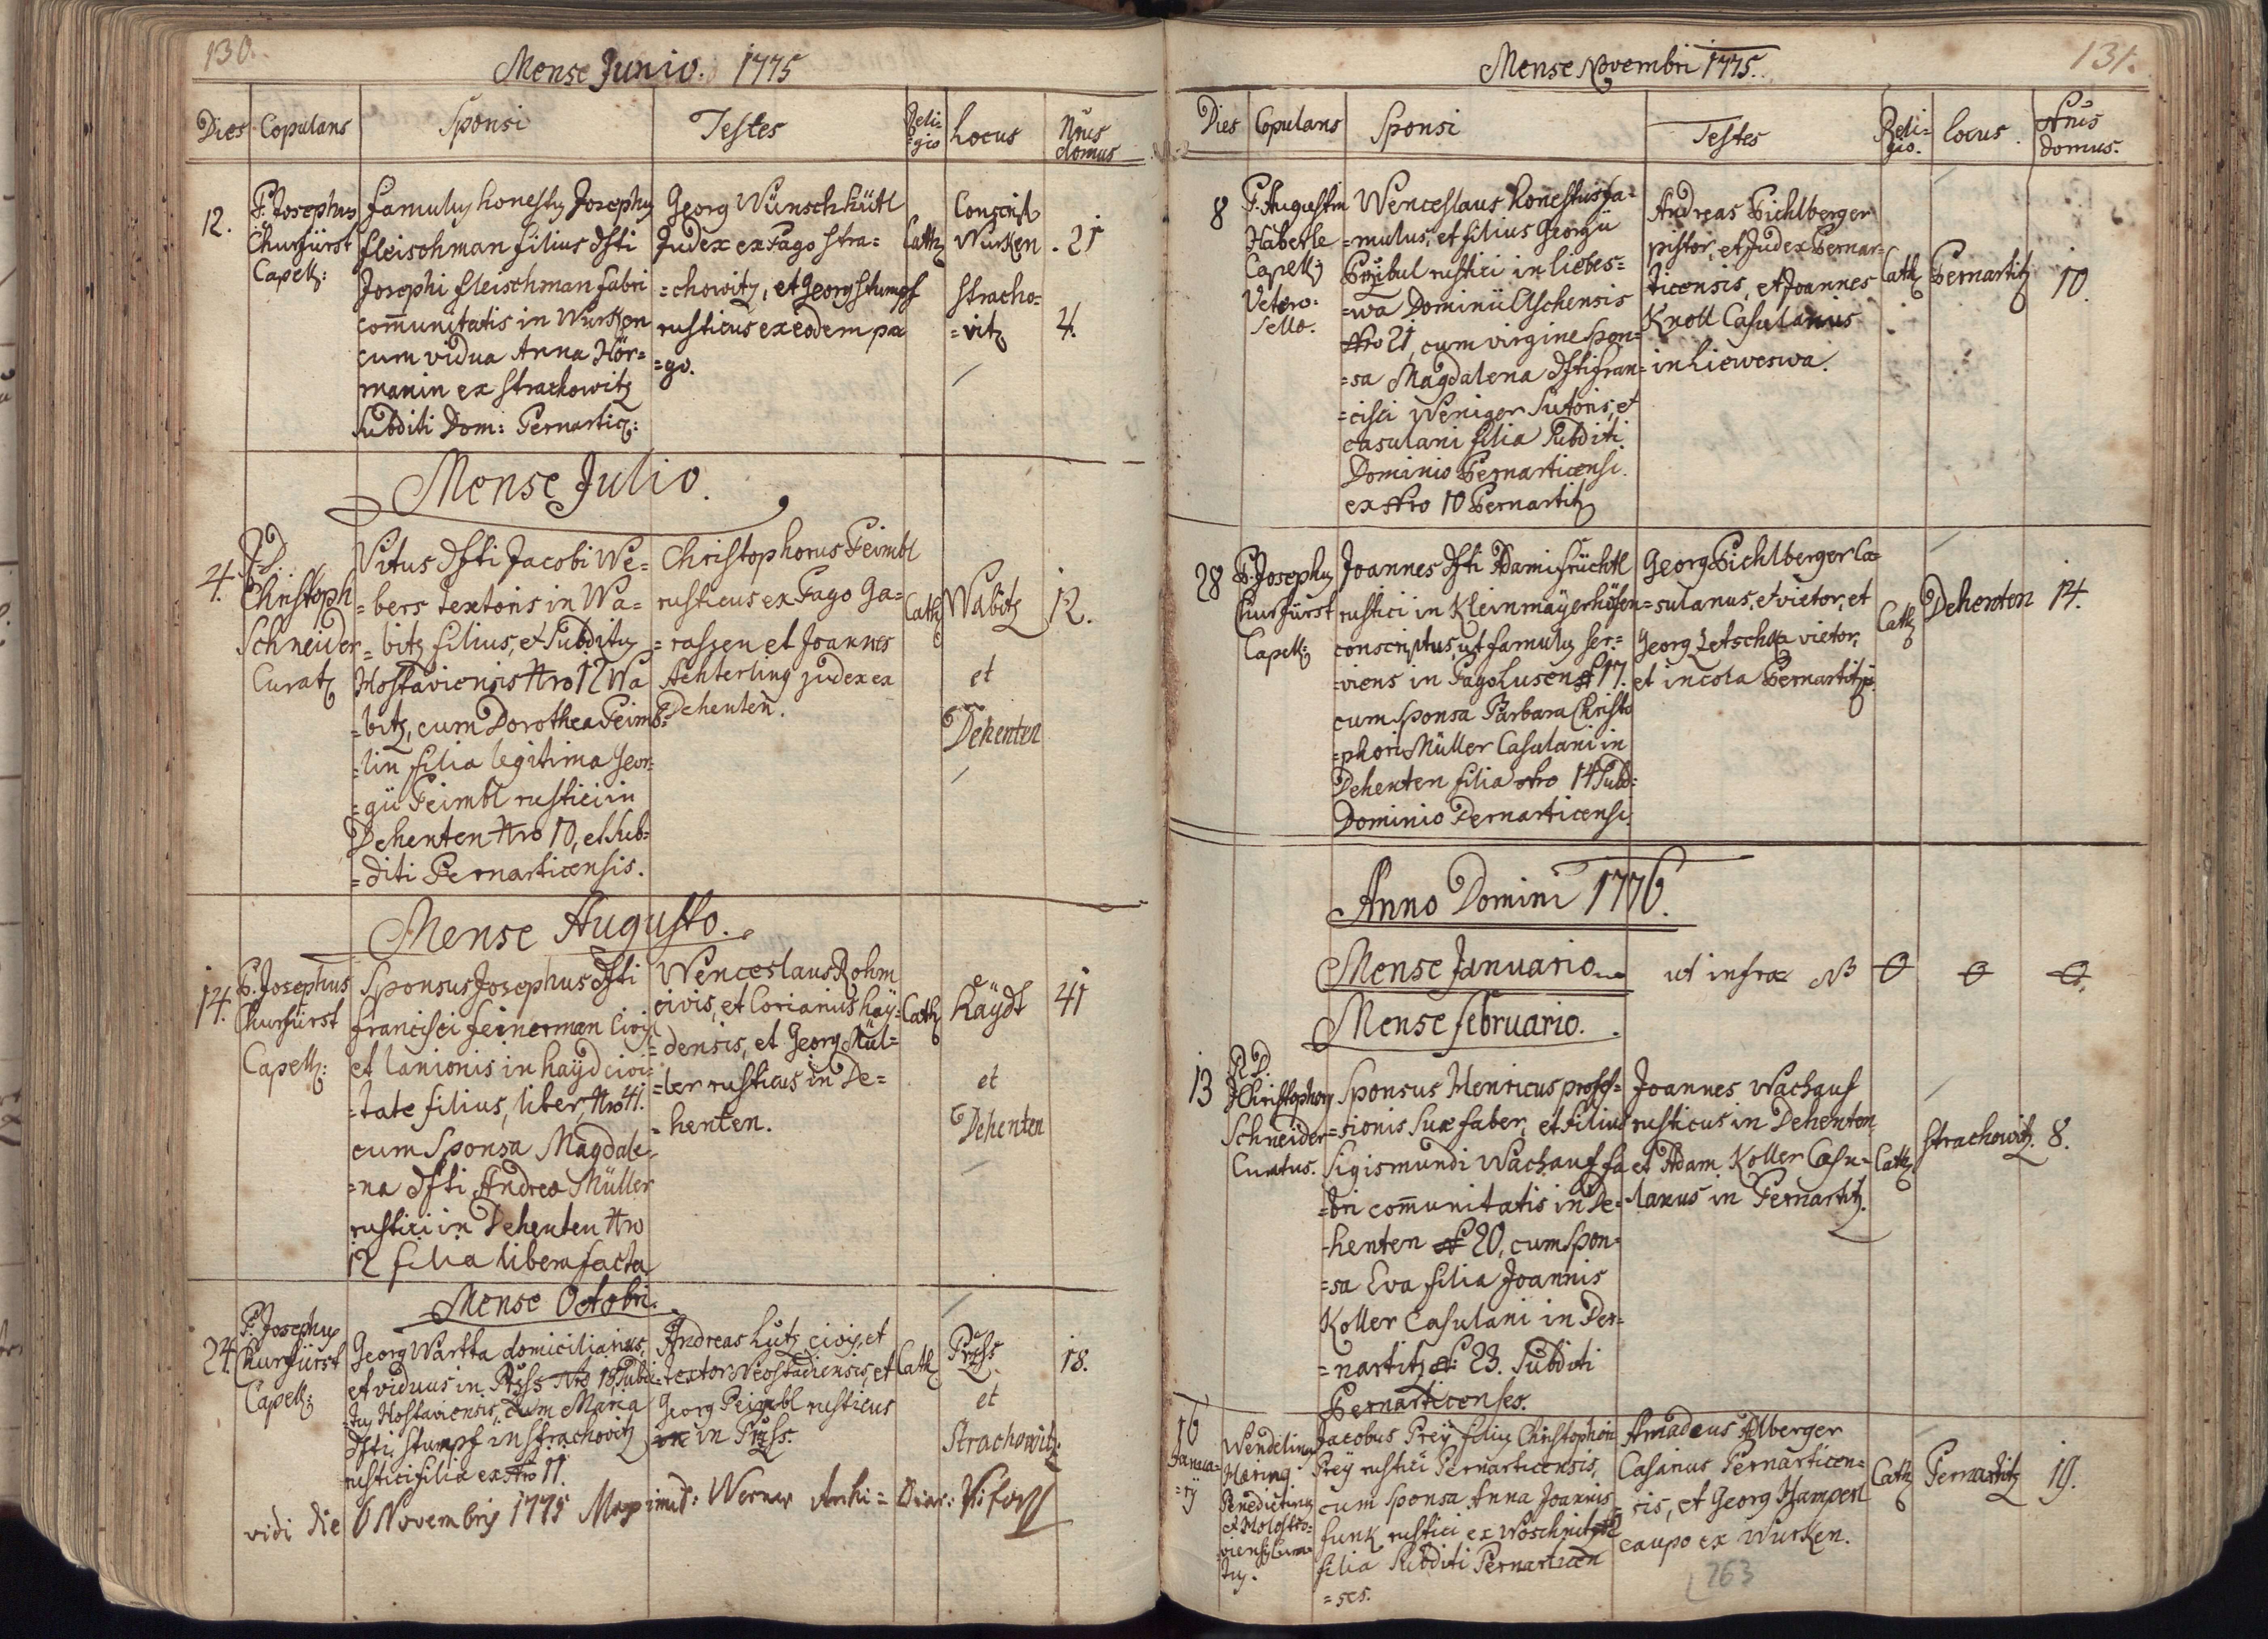 130.
Mense Junio. 1775
Dies Copulans Sponsi Testes Reli= =gio Locus Nrus domus
12.
P. Josephus
Churfürst
Capell:
famulus honestus Josephus
fleischman filius dfti
Josephi fleischman fabri
com̄unitatis in Wurken
cum vidua Anna Hör=
manin ex Strachowitz
Subditi Dom: Pernartic:
Georg Wunschhütl
Judex ex Pago Stra=
=chowitz, et Georg Stumpf
rusticus ex eodem pa
=go.
Cath
Conscrip
Wurken
Stracho=
=vitz
. 21
4.
Mense Julio.
4.
P.D.
Christoph
Schneider
Curat
Vitus dfti Jacobi We=
=bers textoris in Wa=
=bitz filius, et Subditus
Hostaviensis Nro 12 Wa
=bitz, cum Dorothea Peimb=
=lin filia legitima Geor=
=gii Peimbl rustici in
Dehenten Nro 10, et Sub=
=diti Pernarticensis.
Christophorus Peimbl
rusticus ex Pago Ga=
=rassen et Joannes
Achterling judex ex
Dehenten.
Cath
Wabitz
et
Dehenten
12.
Mense Augusto.
14.
P. Josephus
Churfürst
Capell:
Sponsus Josephus dfti
francisci feinerman Civis
et lanionis in hayd civi=
=tate filius, liber, Nro 41.
cum Sponsa Magdale=
=na dfti Andrea Müller
rustici in Dehenten Nro
12 filia libera facta
Wenceslaus Rohm
civis, et Corianus hay=
=densis, et Georg Mül=
=ler rusticus in De=
=henten.
Cath
haydt
et
Dehenten
41
Mense Octobri.
24.
P. Josephus
Churfürst
Capell:
Georg Wartha domiciliarius,
et viduus in Nro 18, Subdi=
=tus Hostaviensis, cum Maria
dfti Stumpf in Strachovitz
rustici filia ex Nro 11.
Andreas Lutz civis, et
textor Neostadiensis, et
Georg Peimbl rusticus
in
Cath
et
Strachowitz.
18.
vidi die 6 Novembris 1775 Werner Archi= Diac:
131.
Mense Novembri 1775.
Dies Copulans Sponsi Testes Reli= gio. Locus. Nrus domus.
8
P. Augustin
Haberle
Capell:
Vetero=
Sello.
Wenceslaus honestus fa=
=mulus, et filius Georgii
Przibul rustici in Liebes=
=wa Dominii Aschensis
Nro 21, cum virgine Spon=
=sa Magdalena dfti fran=
=cisci Weniger Sutoris, et
casulani filia Subditi
Dominio Pernarticensi.
ex Nro 10 Pernartitz
Andreas Pichlberger
pistor, et Judex Pernar=
ticensis, et Joannes
Knoll Casulanius
in Lieweswa.
Cath
Pernartitz
10.
28
P. Josephus
Churfürst
Capell:
Joannes dfti Adami früchtl
rustici in Kleinmayerhöfen
conscriptus, ut famulus ser=
=viens in Pago Lusen N 17.
cum Sponsa Barbara Christo
=phori Müller Casulani in
Dehenten filia Nro 14 Subd=
Dominio Pernarticensi.
Georg Pichlberger Ca=
=sulanus, et vietor, et
Georg Zetscha vietor,
et incola Pernartitz.
Cath
Dehenten
14.
Anno Domini 1776.
Mense Januario ut infra NB
Mense februario.
13
R.D.
Christophorus
Schneider
Curatus.
Sponsus Henricus profes=
=sionis suæ faber, et filius
Sigismundi Wachauf fa
=bri com̄unitatis in De=
=henten N 20, cum Spon=
=sa Eva filia Joannis
Koller Casulani in Per=
=nartitz N: 23. Subditi
Pernarticenses.
Joannes Wachauf
rusticus in Dehenten,
et Adam Koller Casu=
=lanus in Pernartitz.
Cath
Strachowitz.
8.
16
Janua=
=rij
Wendelinus
Mering
Benedictinus
Cura=
tus.
Jacobus Prey filius Christophori
Prey rustici Pernarticensis,
cum Sponsa Anna Joannis
funk rustici ex Woschnitz
filia Subditi Pernarticen
=ses.
Amadeus Alberger
Casarius Pernarticen=
=sis, et Georg Hampel
caupo ex Wurken.
Cath
Pernartitz
19.
263